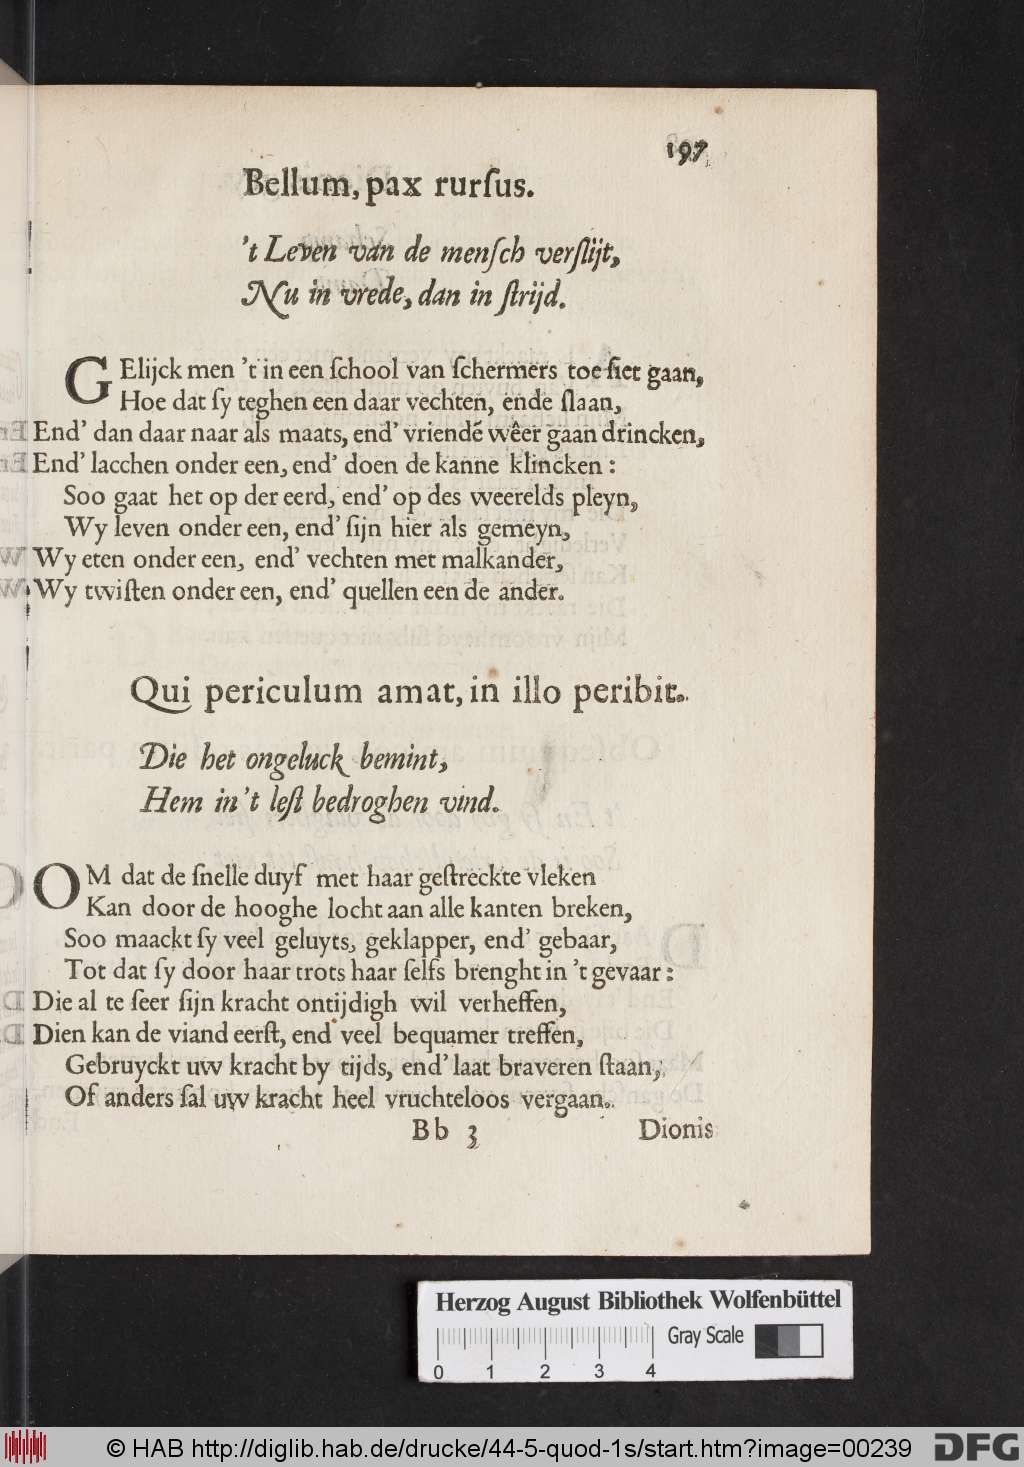 197
Bellum, pax rurſus.
't Leven van de menſch verſlijt,
Nu in vrede, dan in ſtrijd.
GElijck men 't in een ſchool van ſchermers toe ſiet gaan,
Hoe dat ſy teghen een daar vechten, ende ſlaan,
End' dan daar naar als maats, end' vriendé wêer gaan drincken,
End' lacchen onder een, end' doen de kanne klincken:
Soo gaat het op der eerd, end' op des weerelds pleyn,
Wy leven onder een, end' ſijn hier als gemeyn,
Wy eten onder een, end' vechten met malkander,
Wy twiſten onder een, end' quellen een de ander.
Qui periculum amat, in illo peribit.
Die het ongeluck bemint,
Hem in 't leſt bedroghen vind.
OM dat de ſnelle duyf met haar geſtreckte vleken
Kan door de hooghe locht aan alle kanten breken,
Soo maackt ſy veel geluyts, geklapper, end' gebaar,
Tot dat ſy door haar trots haar ſelfs brenght in 't gevaar:
Die al te ſeer ſijn kracht ontijdigh wil verheffen,
Dien kan de viand eerſt, end' veel bequamer treffen,
Gebruyckt uw kracht by tijds, end' laat braveren ſtaan,
Of anders ſal uw kracht heel vruchteloos vergaan.
Bb 3 Dionis
Herzog August Bibliothek Wolfenbüttel
Gray Scale
0 1 2 3 4
© HAB http://diglib.hab.de/drucke/44-5-quod-1s/start.htm?image=00239
DFG